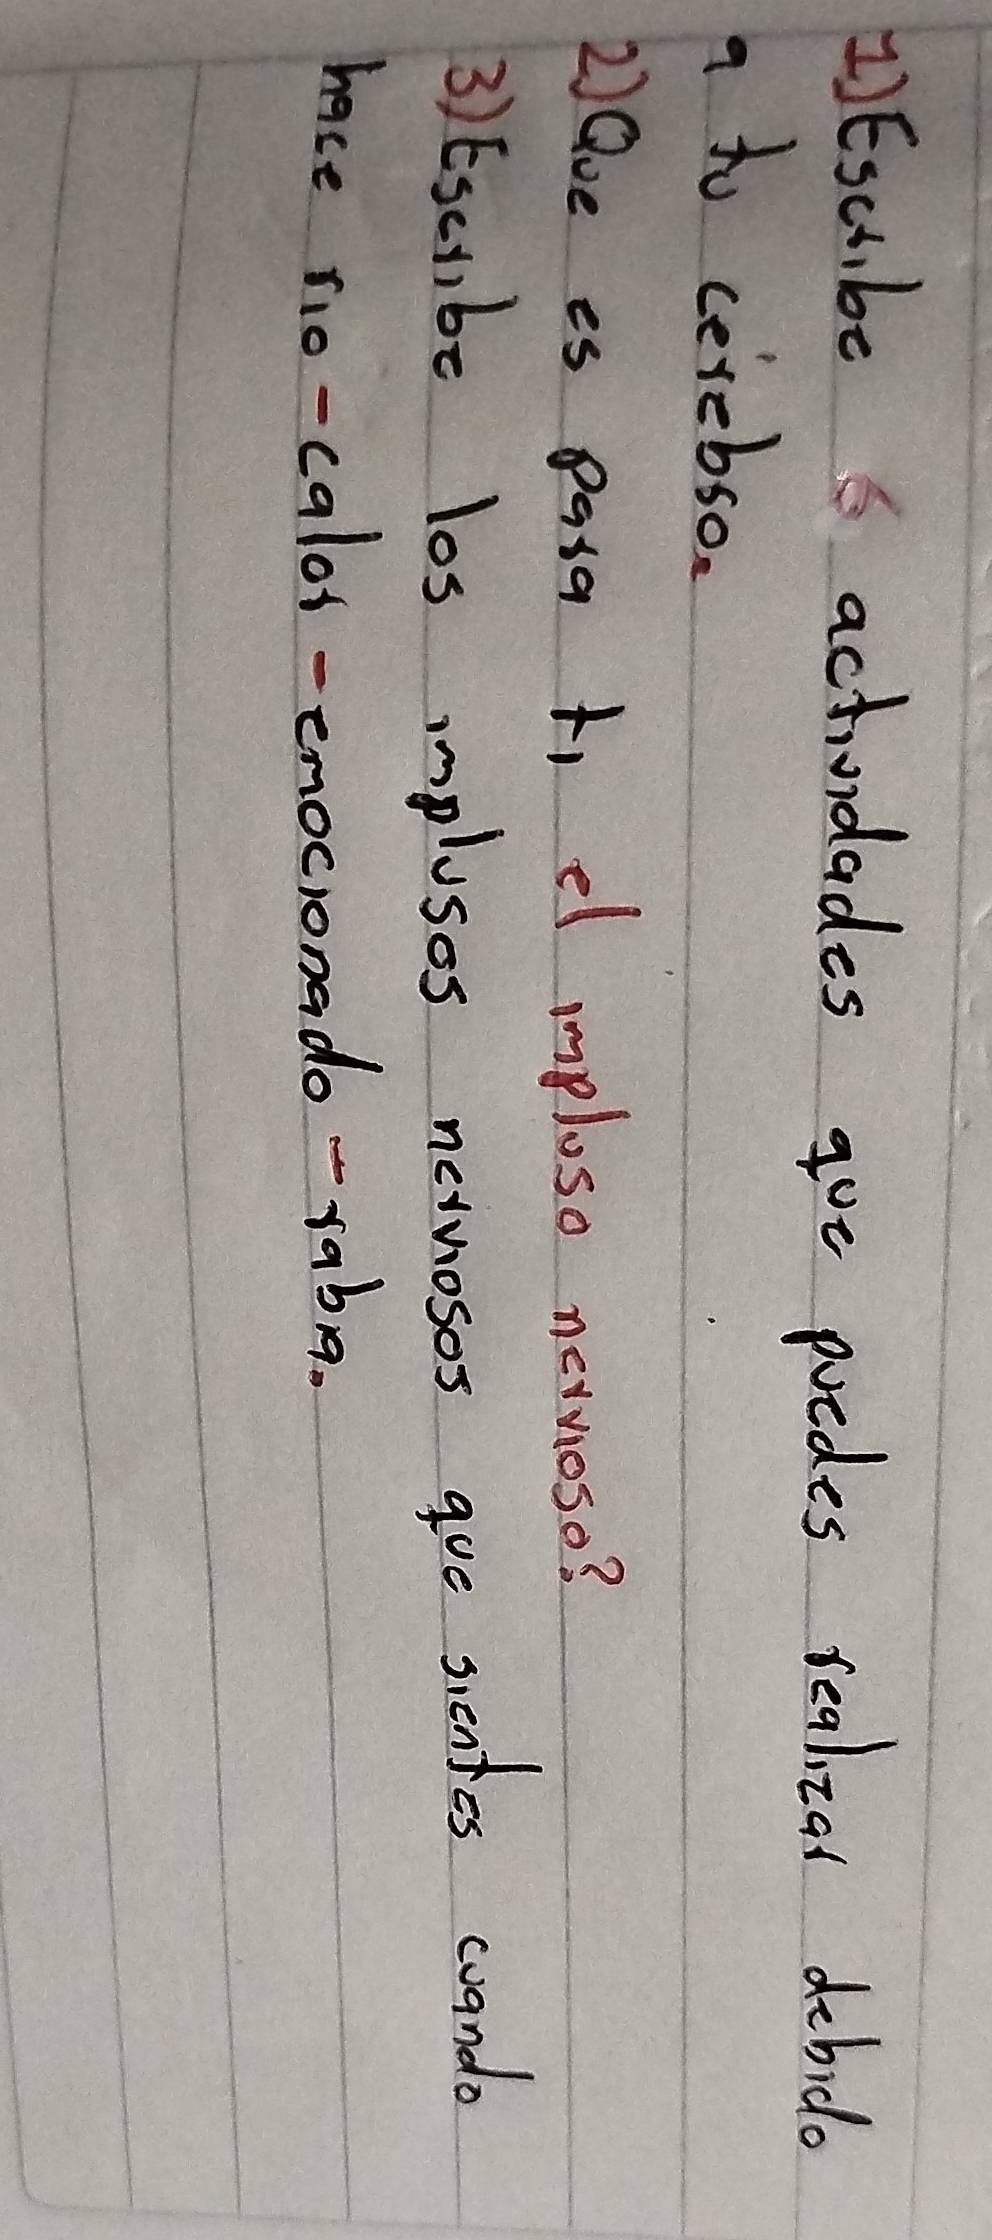 1) Escribe 6 actividades que puedes realizar debido
a tu cerebro.
2) Que es para ti el impluso nervioso?
3) Escribe los implusos nerviosos que sientes cuando
hace rio - calor - emocionado - rabia.